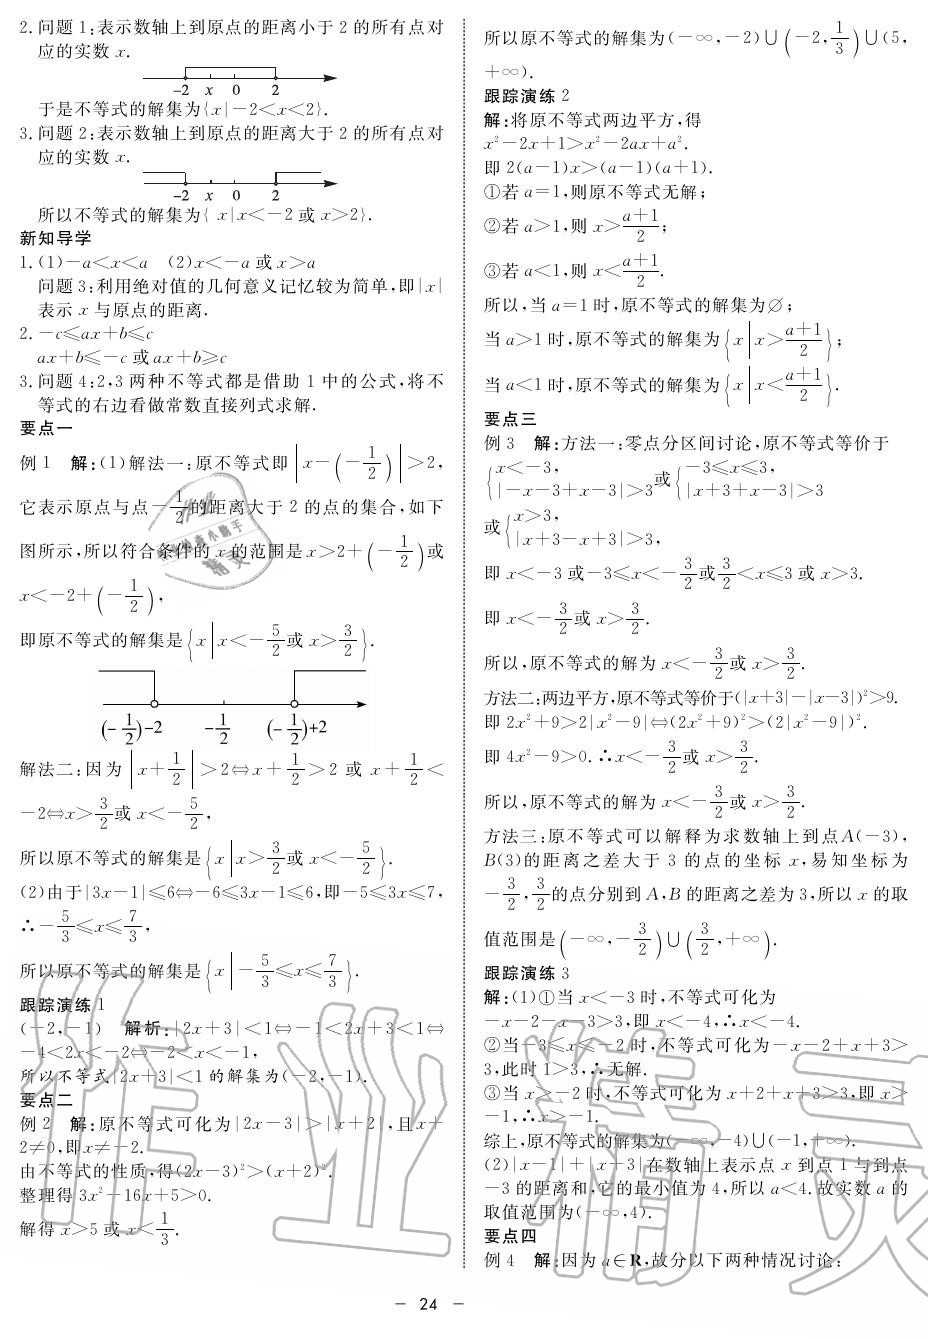 2. 问题 1:表示数轴上到原点的距离小于 2 的所有点对
应的实数 x.
-2 x 0 2
于是不等式的解集为{x|-2<x<2}.
3. 问题 2:表示数轴上到原点的距离大于 2 的所有点对
应的实数 x.
-2 x 0 2
所以不等式的解集为{ x|x<-2 或 x>2}.
新知导学
1. (1)-a<x<a (2)x<-a 或 x>a
问题 3:利用绝对值的几何意义记忆较为简单,即|x|
表示 x 与原点的距离.
2. -c≤ax+b≤c
ax+b≤-c 或 ax+b≥c
3. 问题 4:2,3 两种不等式都是借助 1 中的公式,将不
等式的右边看做常数直接列式求解.
要点一
例 1 解:(1)解法一:原不等式即|x-(-1/2)|>2,
它表示原点与点-1/2的距离大于 2 的点的集合,如下
图所示,所以符合条件的 x 的范围是 x>2+(-1/2)或
x<-2+(-1/2),
即原不等式的解集是{x|x<-5/2或 x>3/2}.
(-1/2)-2 -1/2 (-1/2)+2
解法二:因为|x+1/2|>2⇔x+1/2>2 或 x+1/2<
-2⇔x>3/2或 x<-5/2,
所以原不等式的解集是{x|x>3/2或 x<-5/2}.
(2)由于|3x-1|≤6⇔-6≤3x-1≤6,即-5≤3x≤7,
∴-5/3≤x≤7/3,
所以原不等式的解集是{x|-5/3≤x≤7/3}.
跟踪演练 1
(-2,-1) 解析:|2x+3|<1⇔-1<2x+3<1⇔
-4<2x<-2⇔-2<x<-1,
所以不等式|2x+3|<1 的解集为(-2,-1).
要点二
例 2 解:原不等式可化为|2x-3|>|x+2|,且x+
2≠0,即x≠-2.
由不等式的性质,得(2x-3)²>(x+2)².
整理得 3x²-16x+5>0.
解得 x>5 或 x<1/3.
所以原不等式的解集为(-∞,-2)∪(-2,1/3)∪(5,
+∞).
跟踪演练 2
解:将原不等式两边平方,得
x²-2x+1>x²-2ax+a².
即 2(a-1)x>(a-1)(a+1).
①若 a=1,则原不等式无解;
②若 a>1,则 x>(a+1)/2;
③若 a<1,则 x<(a+1)/2.
所以,当 a=1 时,原不等式的解集为∅;
当 a>1 时,原不等式的解集为{x|x>(a+1)/2};
当 a<1 时,原不等式的解集为{x|x<(a+1)/2}.
要点三
例 3 解:方法一:零点分区间讨论,原不等式等价于
{x<-3, |-x-3+x-3|>3 或 {-3≤x≤3, |x+3+x-3|>3
或{x>3, |x+3-x+3|>3,
即 x<-3 或-3≤x<-3/2或3/2<x≤3 或 x>3.
即 x<-3/2或 x>3/2.
所以,原不等式的解为 x<-3/2或 x>3/2.
方法二:两边平方,原不等式等价于(|x+3|-|x-3|)²>9.
即 2x²+9>2|x²-9|⇔(2x²+9)²>(2|x²-9|)².
即 4x²-9>0.∴x<-3/2或 x>3/2.
所以,原不等式的解为 x<-3/2或 x>3/2.
方法三:原不等式可以解释为求数轴上到点A(-3),
B(3)的距离之差大于 3 的点的坐标 x,易知坐标为
-3/2,3/2的点分别到 A,B 的距离之差为 3,所以 x 的取
值范围是(-∞,-3/2)∪(3/2,+∞).
跟踪演练 3
解:(1)①当 x<-3 时,不等式可化为
-x-2-x-3>3,即 x<-4,∴x<-4.
②当-3≤x≤-2 时,不等式可化为-x-2+x+3>
3,此时 1>3,∴无解.
③当 x>-2 时,不等式可化为 x+2+x+3>3,即 x>
-1,∴x>-1.
综上,原不等式的解集为(-∞,-4)∪(-1,+∞).
(2)|x-1|+|x+3|在数轴上表示点 x 到点 1 与到点
-3 的距离和,它的最小值为 4,所以 a<4.故实数 a 的
取值范围为(-∞,4).
要点四
例 4 解:因为 a∈R,故分以下两种情况讨论:
- 24 -
作业精灵